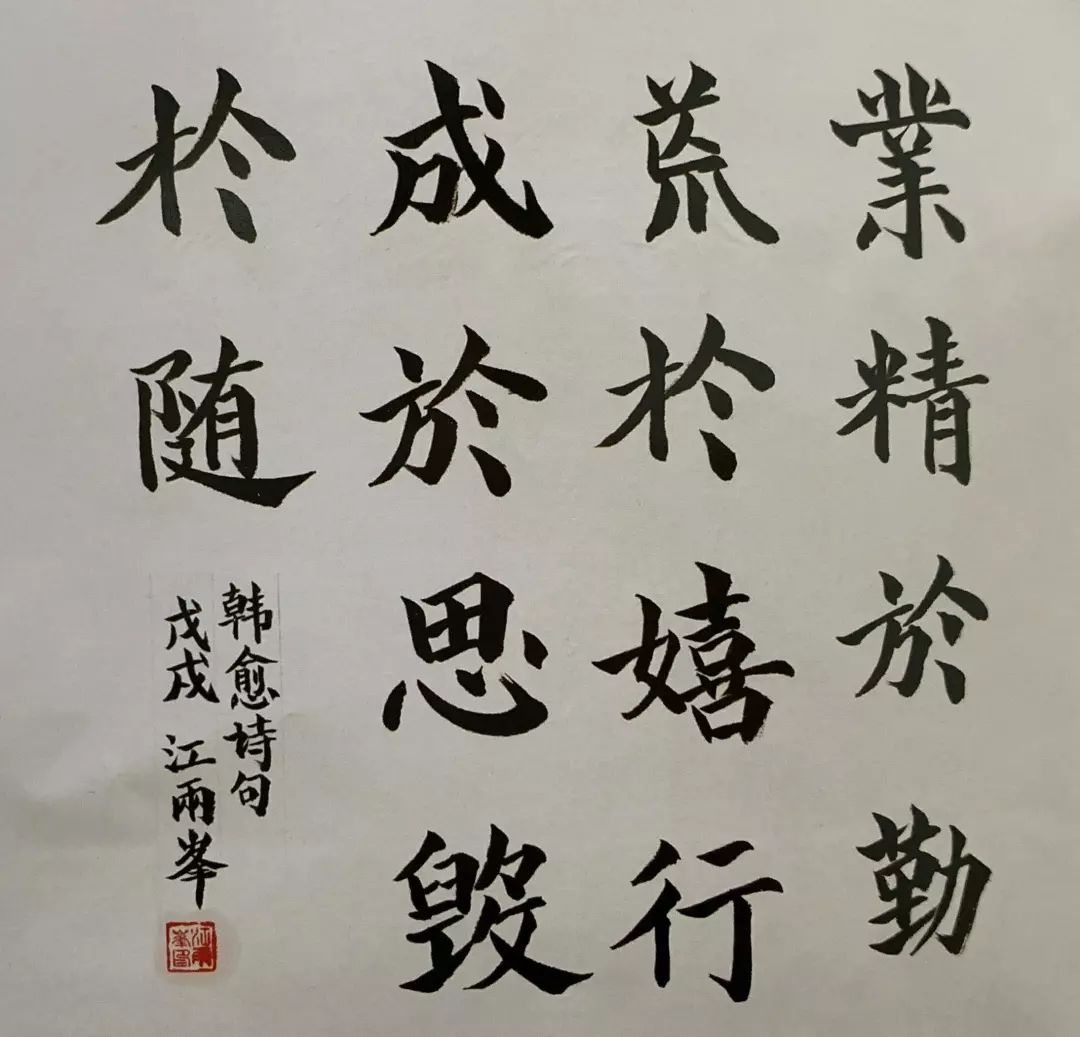 業精於勤
荒於嬉行
成於思毀
於随
韩愈诗句
戊戌 江雨峯